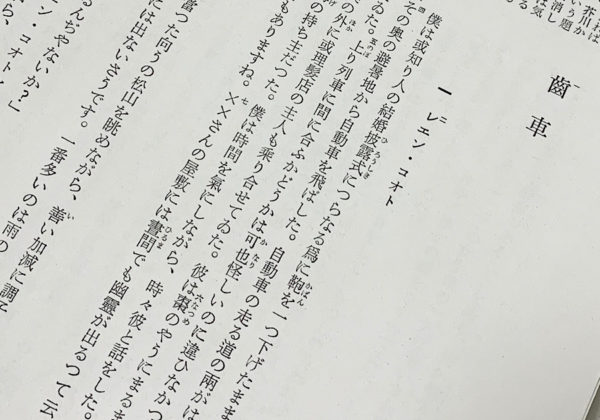 芥川が
いう題
消し
は気
齒車
一 レエン・コオト
僕は或知り人の結婚披露式につらなる爲に鞄を一つ下げたまま
その奥の避暑地から自動車を飛ばした。自動車の走る道の兩がは
ゐた。上り列車に間に合ふかどうかは可也怪しいのに違ひなかつ
の外に或理髮店の主人も乘り合せてゐた。彼は棗のやうにまるま
の持ち主だつた。僕は時間を氣にしながら、時々彼と話をした。
もありますね。××さんの屋敷には晝間でも幽靈が出るつて云
當つた向うの松山を眺めながら、善い加減に調子
には出ないさうです。一番多いのは雨の
るんぢやないか？」
ン・コオト